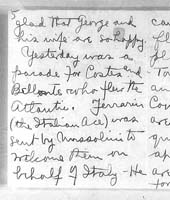 5
glad that George and
his wife are so happy.
Yesterday was a
parade for Costes and
Bellonte who flew the
Atlantic. Ferrarin
(the Italian Ace) was
sent by Mussolini to
welcome them on
behalf of Italy - He
are